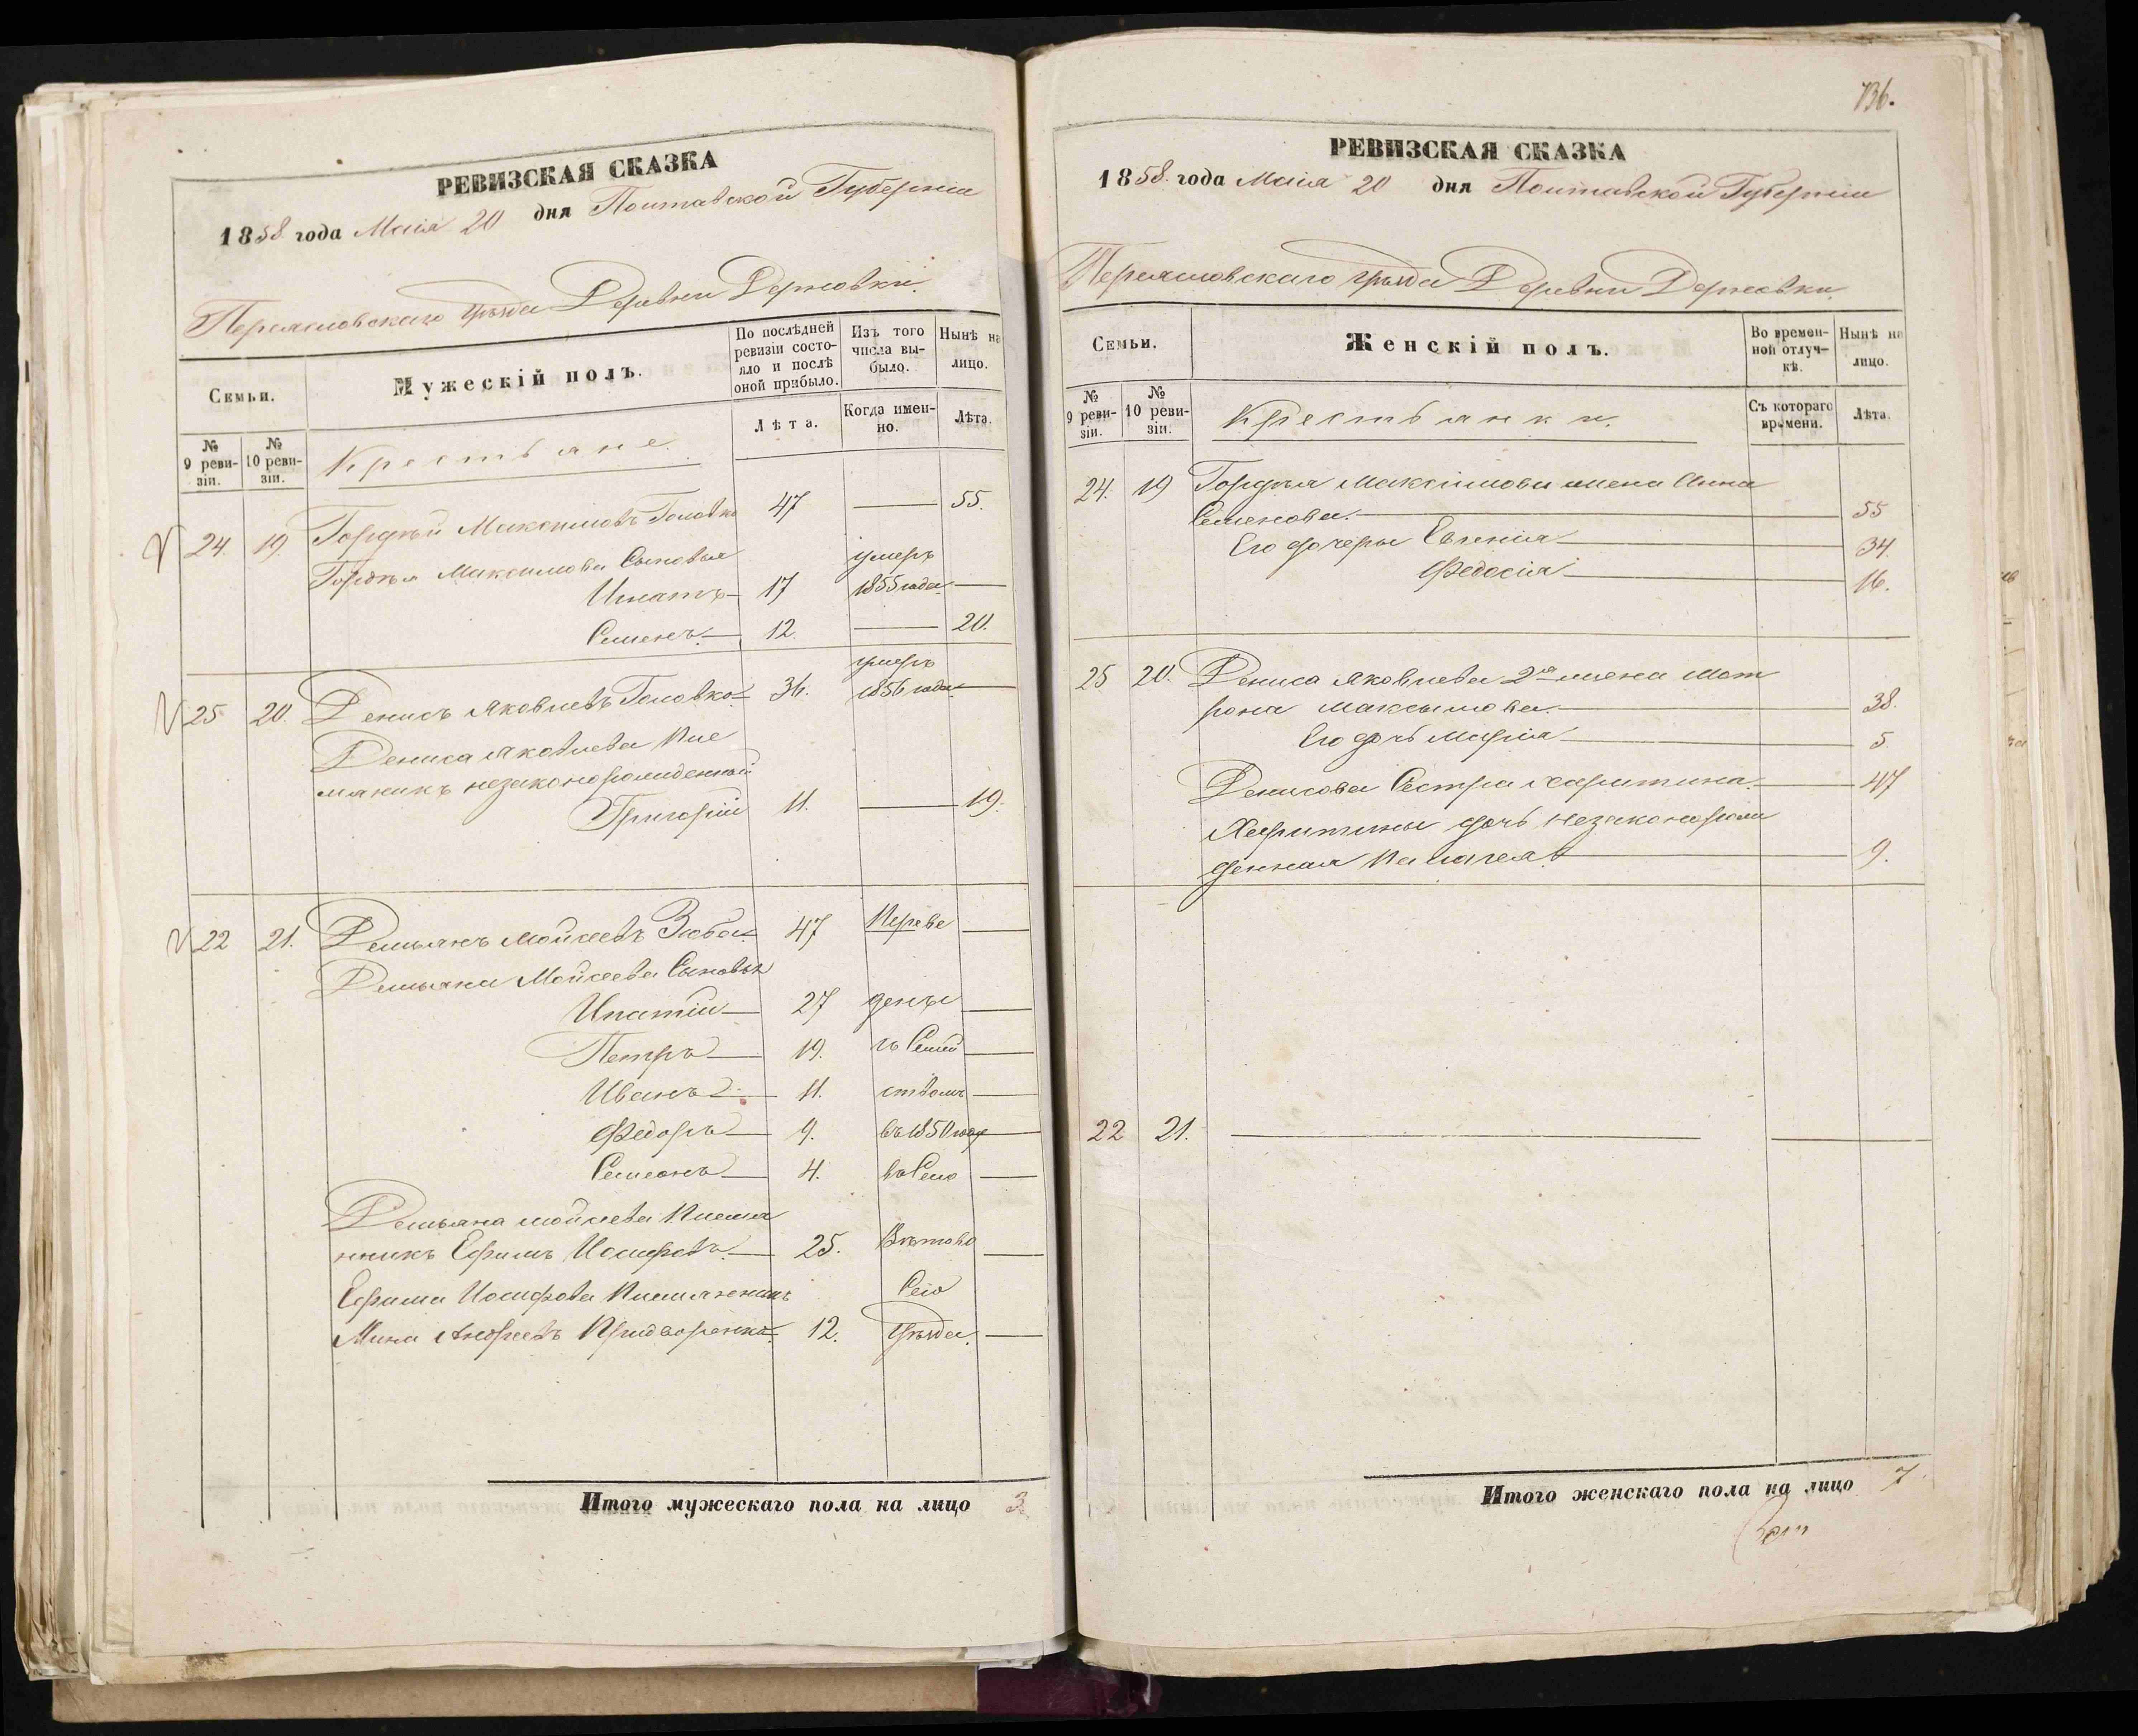 РЕВИЗСКАЯ СКАЗКА
1858 года Маія 20 дня Полтавской Губерніи
Переяславскаго Уѣзда Деревни Держовки.
Семьи.
Мужескій полъ.
По послѣдней ревизіи состояло и послѣ оной прибыло.
Изъ того числа выбыло.
Нынѣ на лицо.
№ 9 ревизіи.
№ 10 ревизіи.
Крестьяне.
Лѣта.
Когда именно.
Лѣта.
24. 19. Гордѣй Максимовъ Головко 47 — 55.
Гордѣя Максимова Сыновья
Игнатъ 17 умеръ 1855 года —
Семенъ 12. — 20.
25 20. Денисъ Яковлевъ Головко 36. умеръ 1856 года —
Дениса Яковлева Пле
мяникъ незаконорожденный
Григорій 11. — 19.
22 21. Демьянъ Мойсеевъ Зюба 47 Переве —
Демьяна Мойсеева Сыновья
Ипатій 27 дены —
Петръ 19. съ Семей —
Иванъ 11. ствомъ —
Федоръ 9. въ 1850 году —
Семіонъ 4. въ Село —
Демьяна Мойсеева Племя
нникъ Ефимъ Иосифовъ 25. —
Ефима Иосифова Племянникъ Сего
Мина Андреевъ Придворенко 12. Уѣзда. —
Итого мужескаго пола на лицо 3.
736.
РЕВИЗСКАЯ СКАЗКА
1858 года Маія 20 дня Полтавской Губерніи
Переяславскаго Уѣзда Деревни Держовки.
Семьи.
Женскій полъ.
Во временной отлучкѣ.
Нынѣ на лицо.
№ 9 ревизіи.
№ 10 ревизіи.
Крестьянки.
Съ котораго времени.
Лѣта.
24. 19 Гордѣя Максимова жена Анна
Семенова. 55
Его дочеры Евгенія 34.
Федосія 16.
25 20. Дениса Яковлева 2я жена Мот
рона Максымова. 38.
Его дочь Марія 5.
Денисова Сестра Харитина 47
Харитины дочь незаконорож
денная Палагея 9.
22 21. —
Итого женскаго пола на лицо 7.